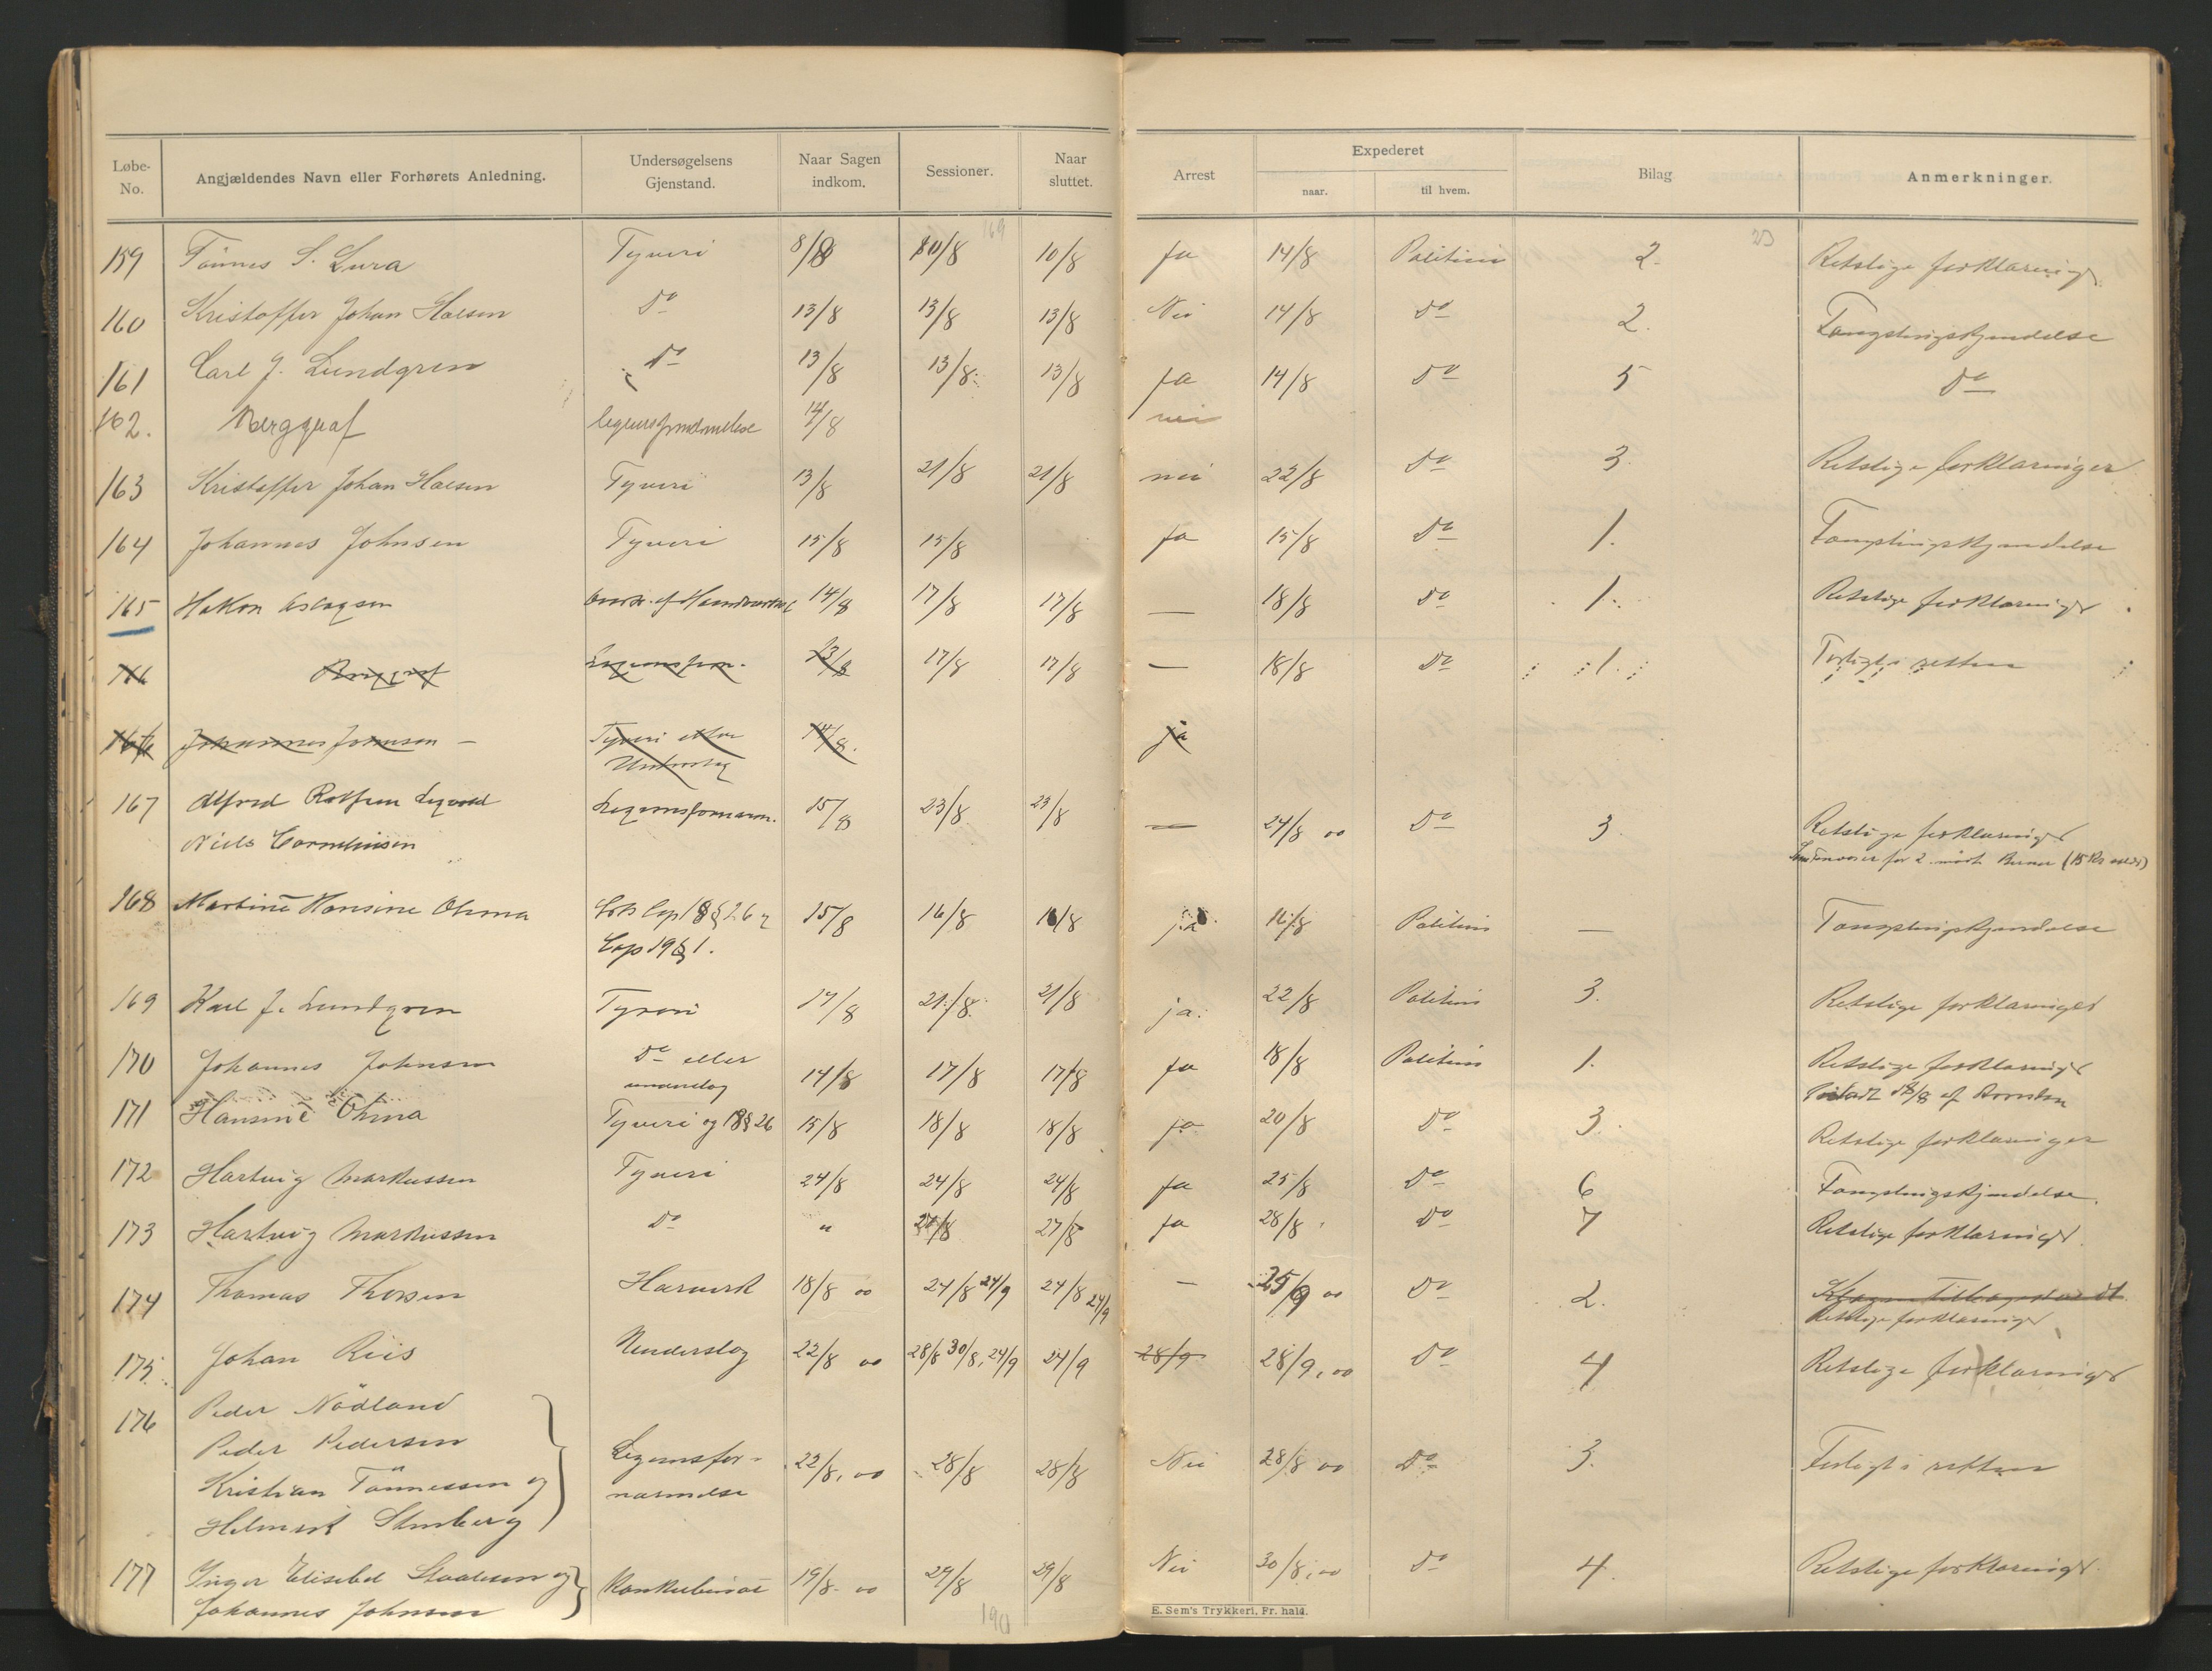 Løbe-No. Angjældendes Navn eller Forhørets Anledning. Undersøgelsens Gjenstand. Naar Sagen indkom. Sessioner. Naar sluttet. Arrest Expederet naar. til hvem. Bilag Anmerkninger.
169 23
159 Tönnes S. Lura Tyveri 8/8 10/8 10/8 Ja 14/8 Politiet 2. Retslige forklaringer
160 Kristoffer Johan Holsen Do 13/8 13/8 13/8 Nei 14/8 Do 2. Fængslingskjendelse
161 Carl J. Lundgren Do 13/8 13/8 13/8 Ja 14/8 Do 5 Do
162. Berggraf 14/8 nei
163 Kristoffer Johan Holsen Tyveri 13/8 21/8 21/8 nei 22/8 Do 3. Retslige forklaringer
164 Johannes Johnsen Tyveri 15/8 15/8 Ja 15/8 Do 1. Fængslingskjendelse
165 Hakon Aslagsen 14/8 17/8 17/8 — 18/8 Do 1. Retslige forklaringer
166 Berggraf Legemsforn. 23/8 17/8 17/8 — 18/8 Do 1. Forligt i retten
Johannes Johnsen — Tyveri eller Underslag 14/8. ja
167 Alfred Legvold Legemsfornærm. 15/8 23/8 23/8 — 24/8 00 Do 3. Retslige forklaringer
Niels Cornelius​en for 2 mødt
168 Martine Hansine Ohma Cap 18 § 26 15/8 16/8 16/8 ja. 16/8 Politiet — Fængslingskjendelse
Cap 19 § 1.
169 Karl J. Lundgren Tyveri 17/8 21/8 21/8 ja. 22/8 Politiet 3. Retslige forklaringer
170 Johannes Johnsen Do eller underslag 14/8 17/8 17/8 Ja 18/8 Politiet 1. Retslige forklaringer
171 Hansine Ohma Tyveri og 18 § 26 15/8 18/8 18/8 ja 20/8 Do 3. Retslige forklaringer
172 Hartvig Markussen Tyveri 24/8 24/8 24/8 Ja 25/8 Do 6 Fængslingskjendelse.
173 Hartvig Markussen Do " 27/8 27/8 Ja 28/8 Do 7 Retslige forklaringer.
174 Thomas Thorsen Hærverk 18/8 00 24/8 24/9 24/8 24/9 — 25/9 00 Do 2. Klagen tilbagekaldt
Retslige forklaringer
175 Johan Riis Underslag 22/8 00 28/8 30/8, 24/9 24/9 28/9 28/9, 00 Do 4 Retslige forklaringer
176 Peder Nödland
Peder Pedersen
Kristian Tönnessen og Legemsfornærmelse 22/8, 00 28/8 28/8 Nei 28/8 00 Do 3. Forligt i retten
Helmert Stenberg
177 Inger Elisebet og Konkubinat 19/8 00 29/8 29/8 Nei 30/8, 00 Do 4. Retslige forklaringer.
Johannes Johnsen
190
E. Sem's Trykkeri, Fr. hald.